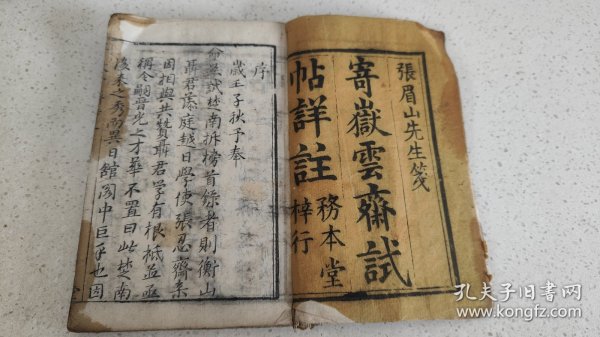 張眉山先生箋
寄嶽雲齋試
帖詳註
務本堂
梓行
序
歲壬子秋予奉
命典試楚南拆榜首錄者則衡山
聶君蓉庭越日學使張忍齋來
因相與共贊聶君學有根柢並亟
稱令嗣當光上才華不置曰此楚南
後來之秀而異日館閣中巨手也因
孔夫子旧书网
www.kongfz.com